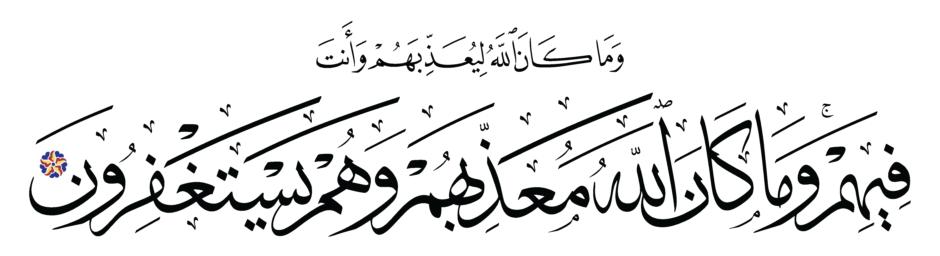 وَمَا كَانَ ٱللَّهُ لِيُعَذِّبَهُمْ وَأَنتَ
فِيهِمْ ۚ وَمَا كَانَ ٱللَّهُ مُعَذِّبَهُمْ وَهُمْ يَسْتَغْفِرُونَ